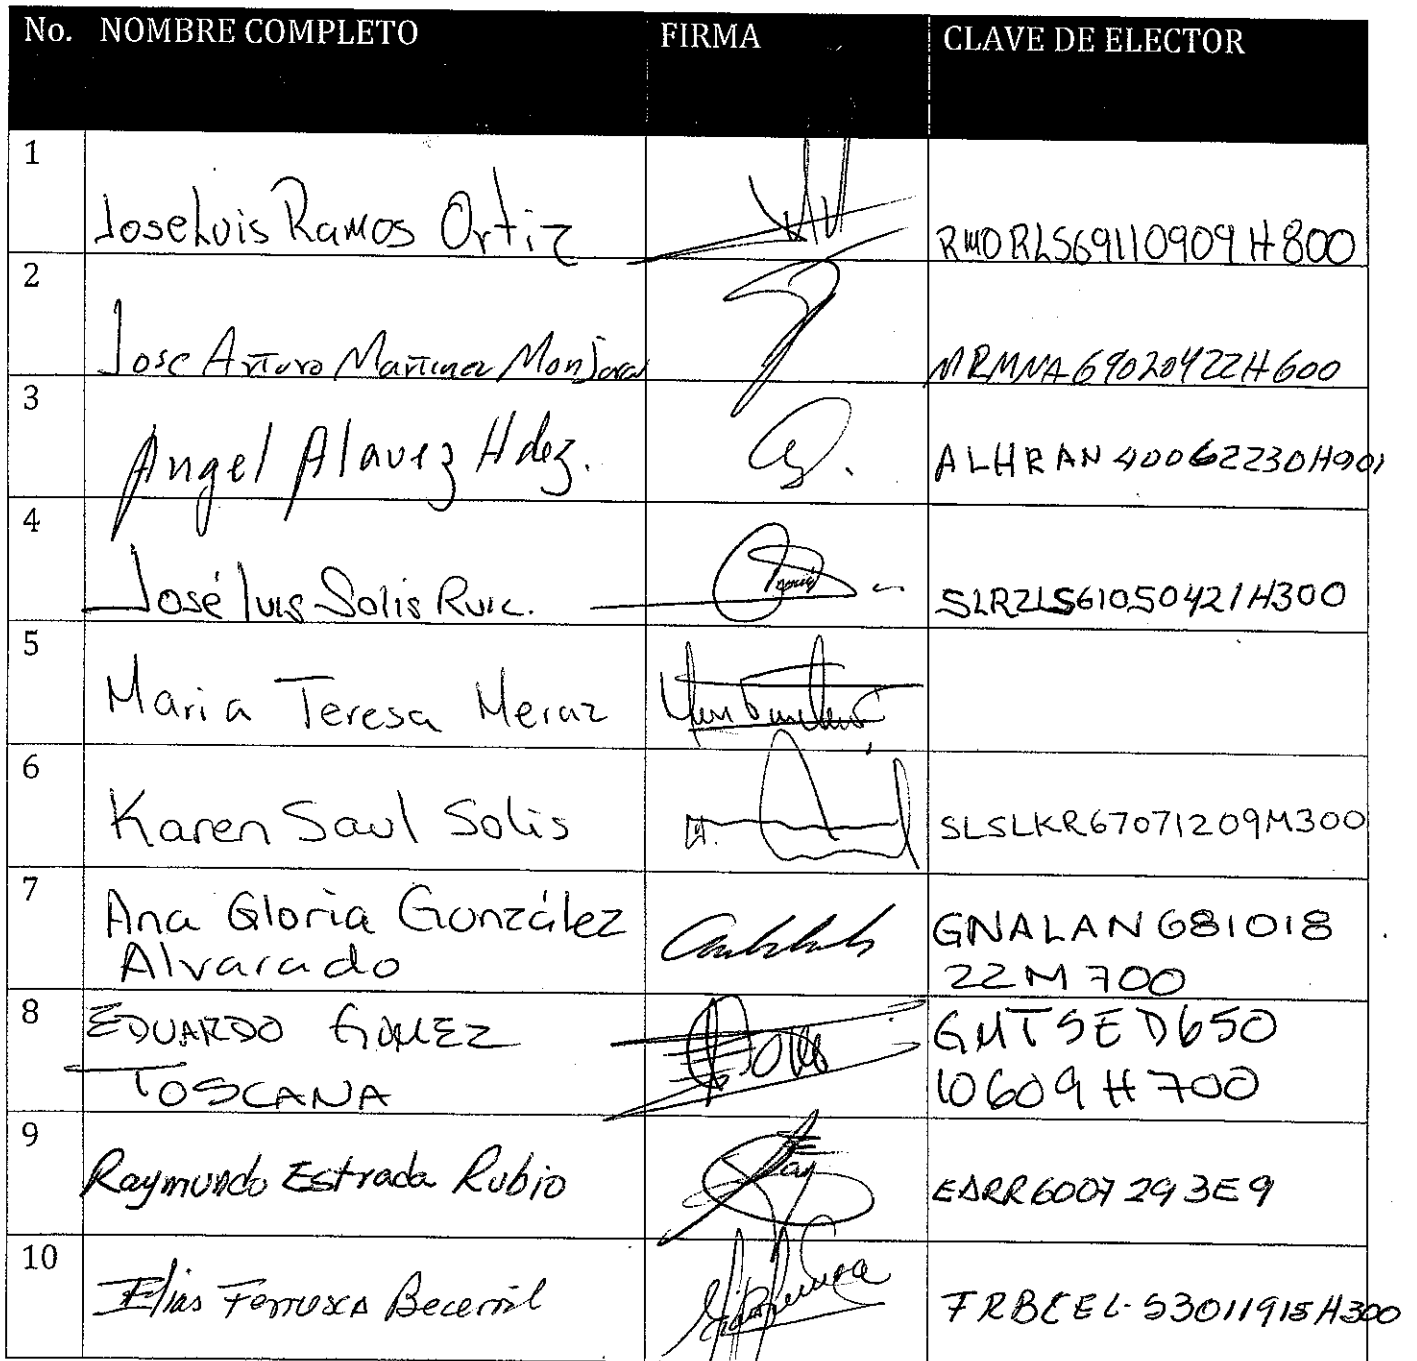 No. NOMBRE COMPLETO FIRMA CLAVE DE ELECTOR
1
Jose Luis Ramos Ortiz RMORLS69110909H800
2
Jose Arturo Martinez Monjaraz MRMNA69020422H600
3
Angel Alavez Hdez. ALHRAN40062230H901
4
José luis Solis Ruiz. SLRZLS61050421H300
5
Maria Teresa Meraz
6
Karen Saul Solis SLSLKR67071209M300
7
Ana Gloria González GNALAN681018
Alvarado 22M700
8
EDUARDO GOMEZ GMTSED650
TOSCANA 10609H700
9
Raymundo Estrada Rubio EARR6007293E9
10
Elias Ferrusca Becerril FRBCEL-53011915H300